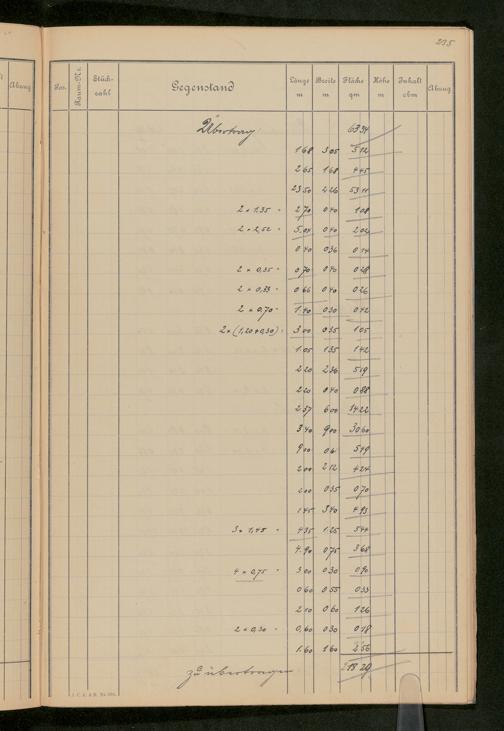 215
Pos. Raum-Nr. Stückzahl Gegenstand Länge m Breite m Fläche qm Höhe m Inhalt cbm Abzug
Übertrag 63 34
1 68 3 05 5 12
2 65 1 68 4 45
23 50 2 26 53 11
2 × 1,35 = 2 70 0 40 1 08
2 × 2,52 = 5 04 0 40 2 02
0 40 0 36 0 14
2 × 0,35 = 0 70 0 40 0 28
2 × 0,33 = 0 66 0 40 0 26
2 × 0,70 = 1 40 0 30 0 42
2 × (1,20 + 0,30) = 3 00 0 35 1 05
1 05 1 35 1 42
2 20 2 36 5 19
2 20 0 40 0 88
2 37 6 00 14 22
3 40 9 00 30 60
9 00 0 61 5 49
2 00 2 12 4 24
2 00 0 35 0 70
1 45 3 40 4 93
3 × 1,45 = 4 35 1 25 5 44
4 90 0 75 3 68
4 × 0,75 = 3 00 0 30 0 90
0 60 0 55 0 33
2 10 0 60 1 26
2 × 0,30 = 0,60 0 30 0 18
1.60 1 60 2 56
zu übertragen